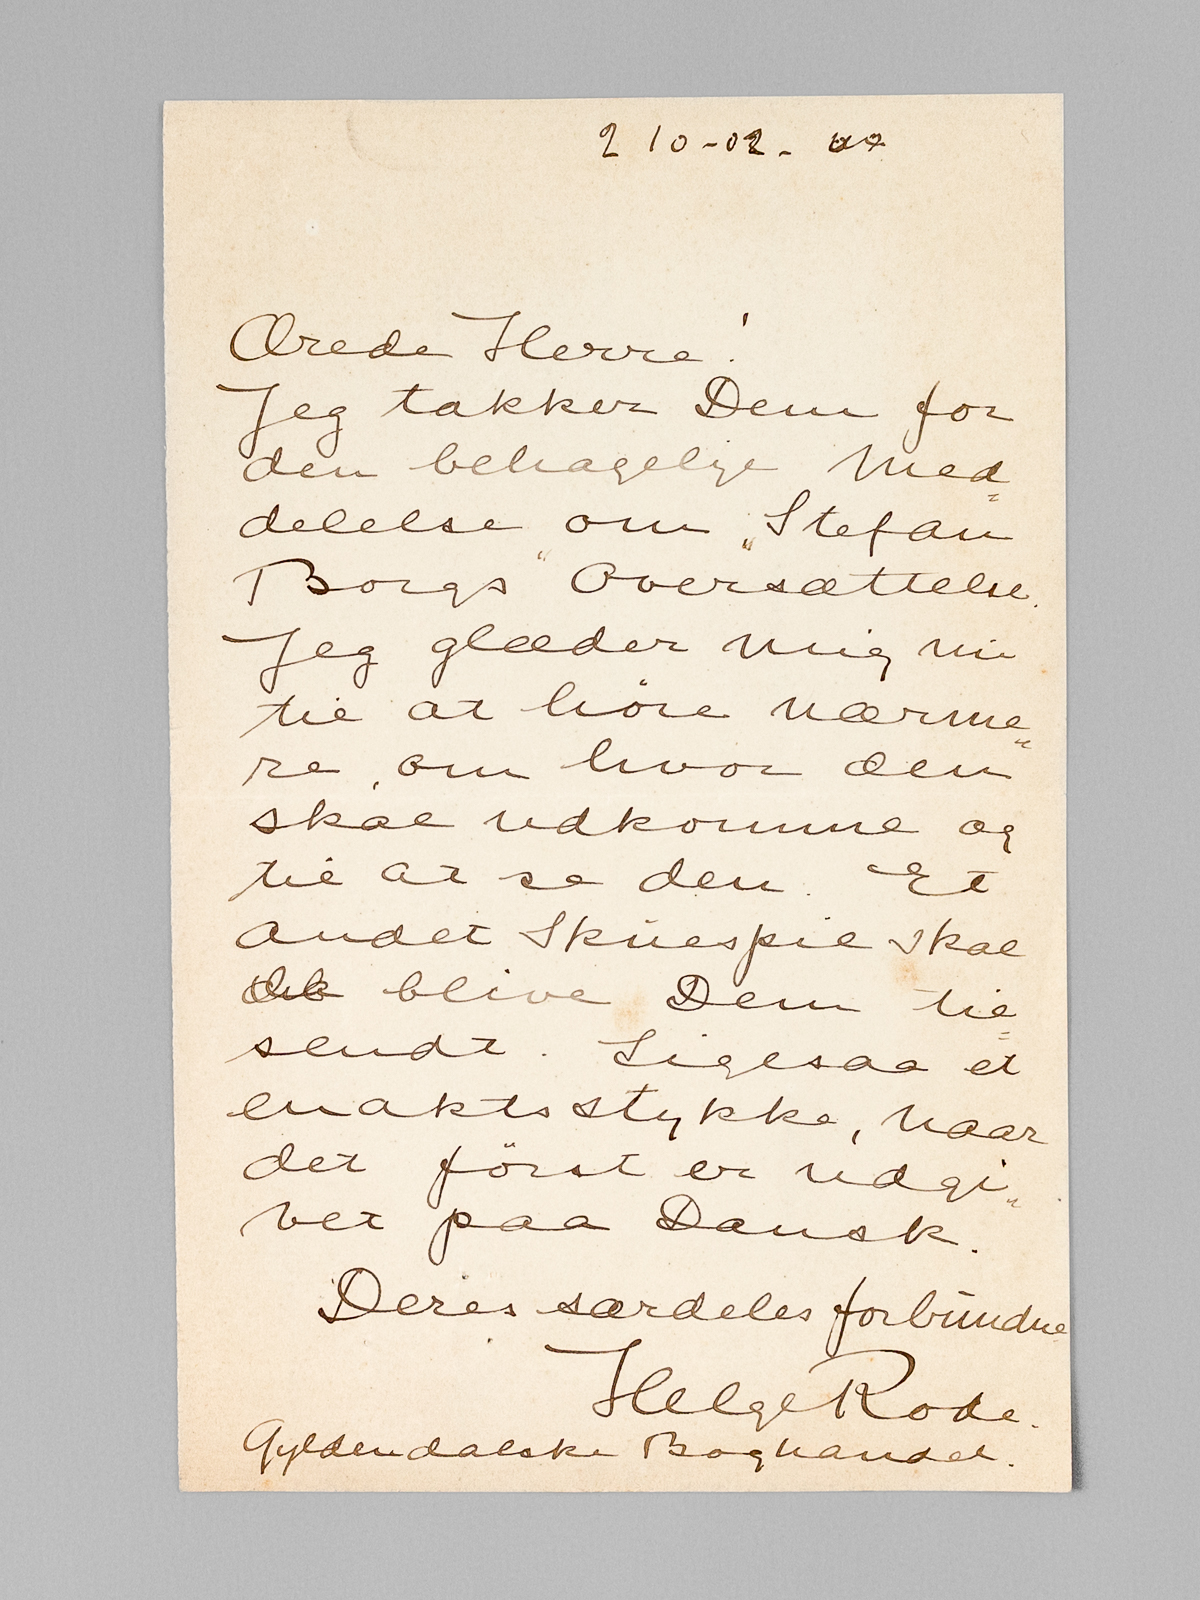 2 10-02.
Ærede Herre!
Jeg takker Dem for
den behagelige Med=
delelse om „Stefan
Borgs" Oversættelse.
Jeg glæder mig nu
til at höre nærme„
re, om hvor den
skal udkomme og
til at se den. Et
andet Skuespil skal
blive Dem til=
sendt. Ligesaa et
enaktsstykke, naar
det först er udgi„
vet paa Dansk.
Deres særdeles forbundne
Helge Rode.
Gyldendalske Boghandel.